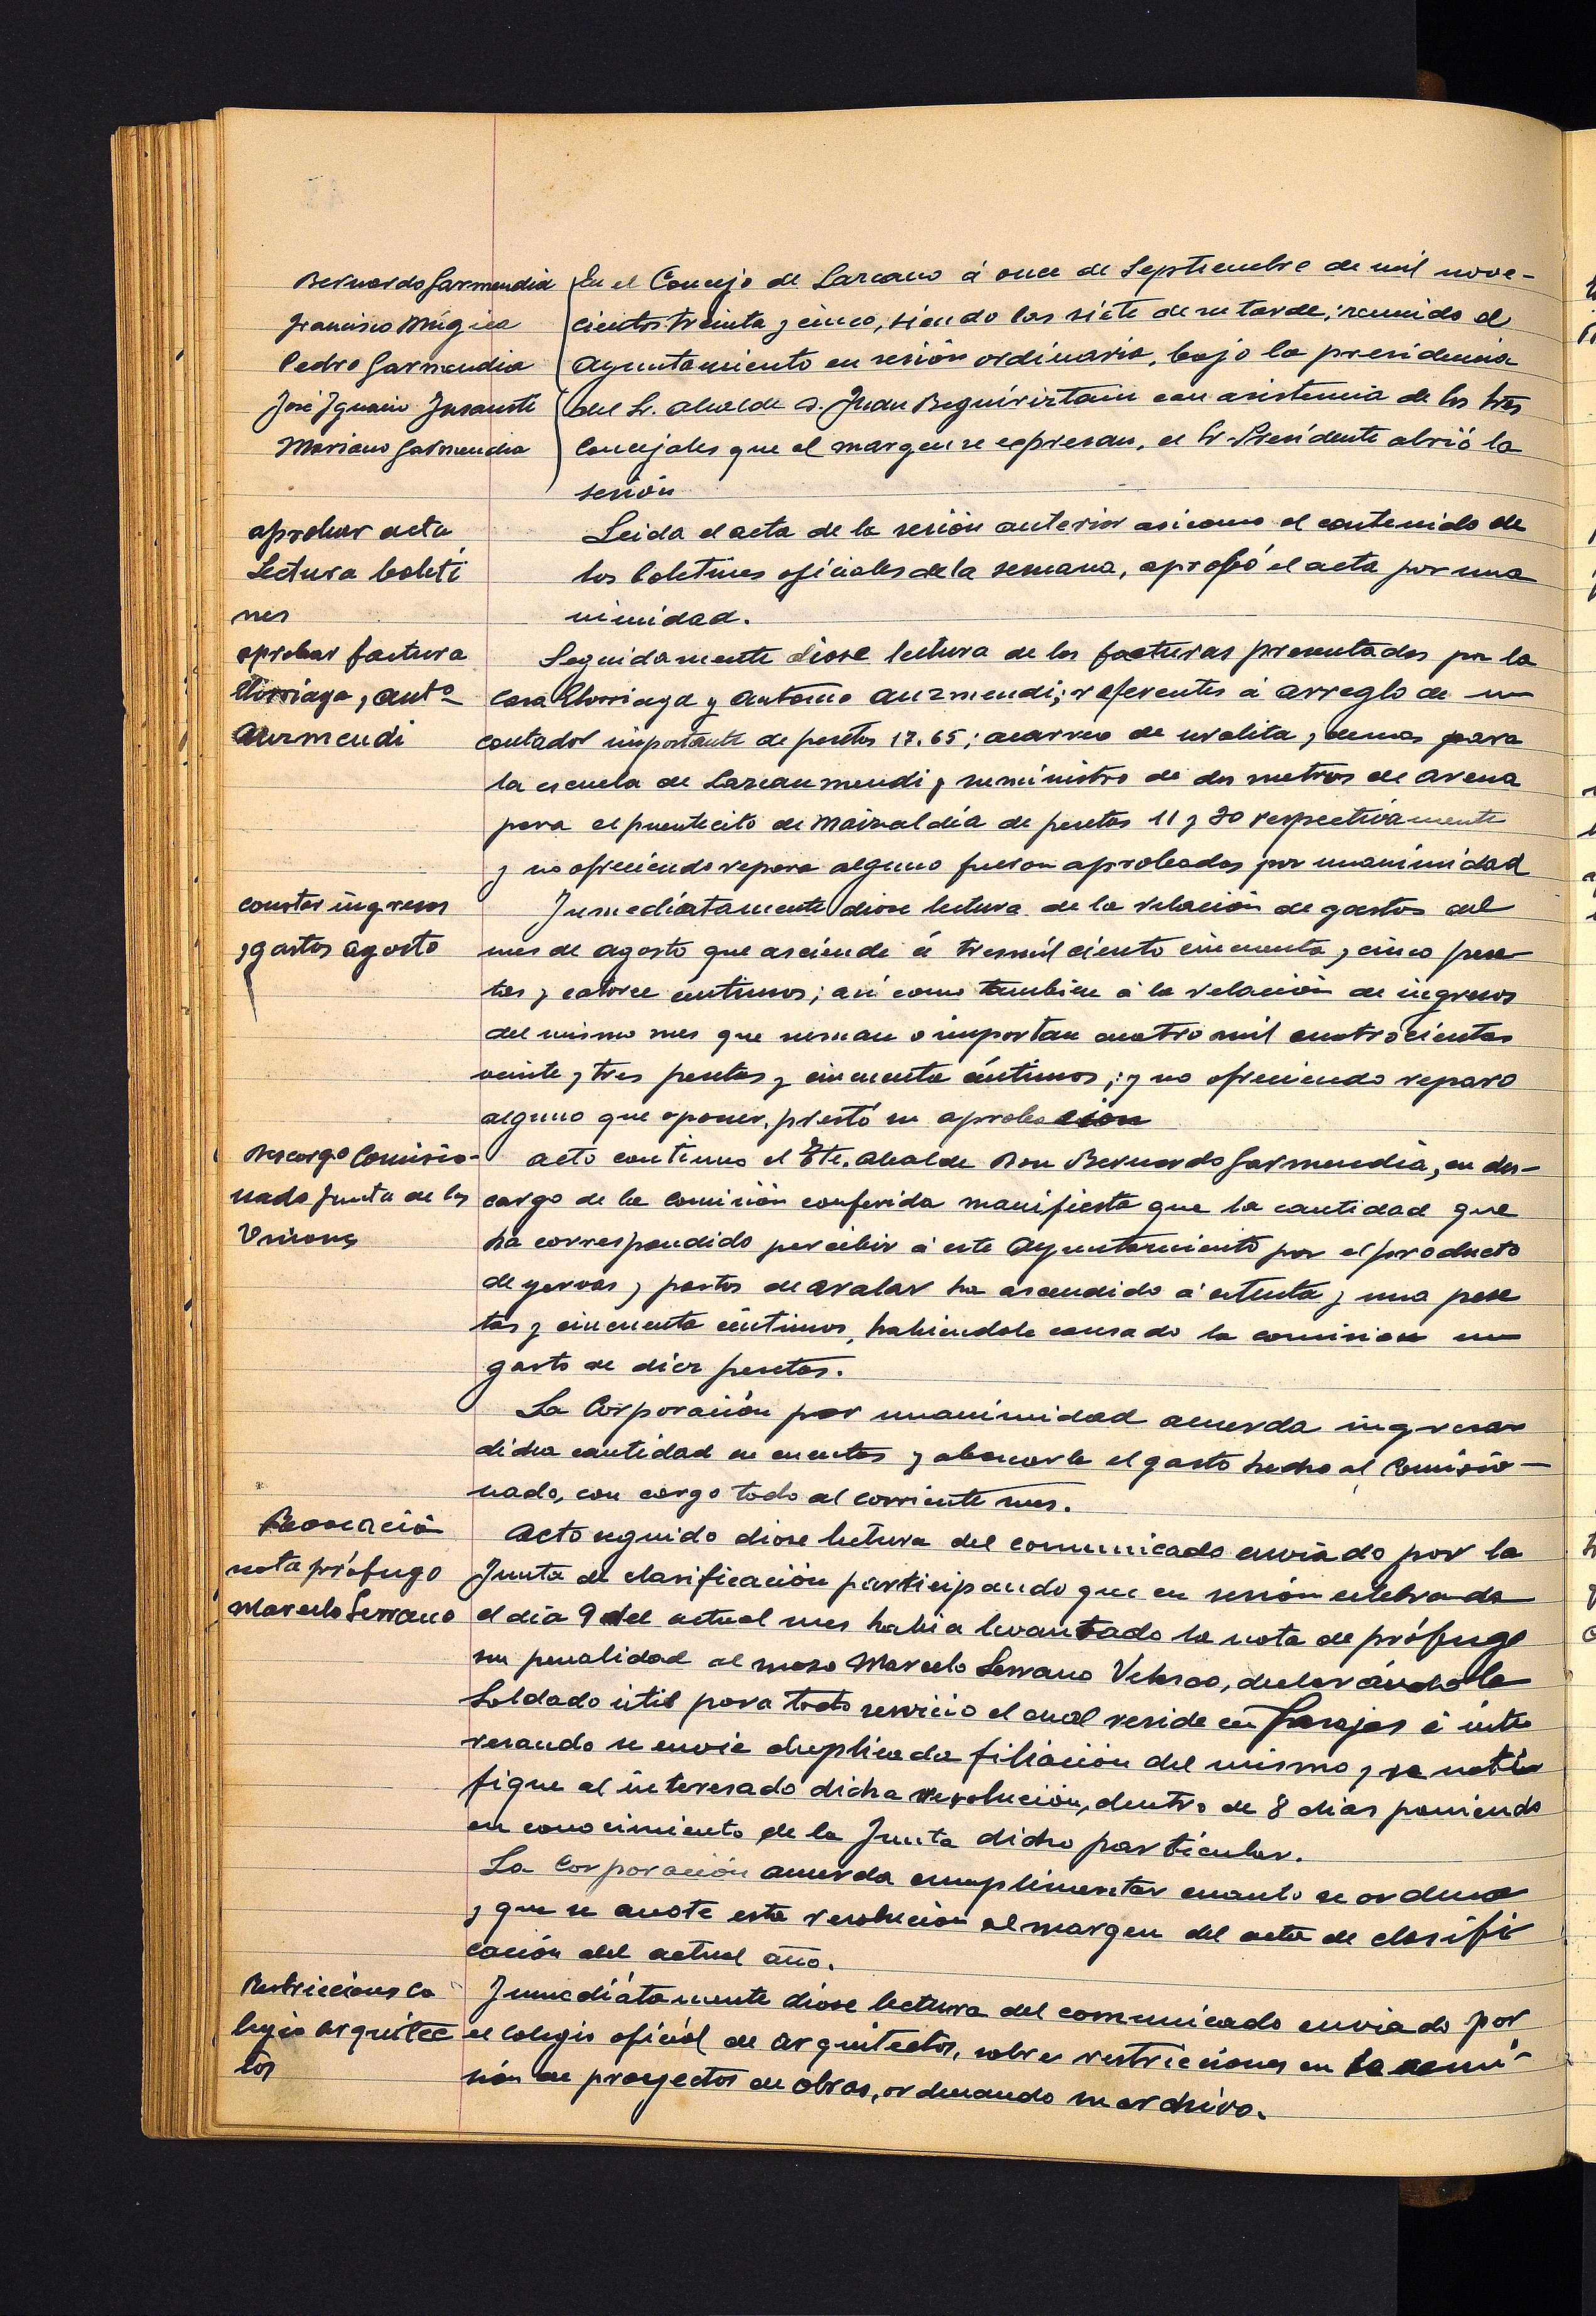 Bernardo Garmendia
Francisco Múgica
Pedro Garmendia
José Ignacio Insausti
Mariano Garmendia
En el Concejo de Lazcano á once de Septiembre de mil nove-
cientos treinta y cinco, siendo las siete de su tarde; reunido el
Ayuntamiento en sesión ordinaria, bajo la presidencia
del Sr. Alcalde D. Juan Beguiristain con asistencia de los tres
Concejales que al margen se expresan, el Sr. Presidente abrió la
sesión
aprobar acta
Lectura boleti
nes
Leida el acta de la sesión anterior asi como el contenido de
los boletines oficiales de la semana, aprobó el acta por una
nimidad.
aprobar factura
Elorriaga y Antº
Auzmendi
Seguidamente diose lectura de las facturas presentadas por la
Casa Elorriaga y Antonio Auzmendi; referentes á arreglo de un
contador importante de pesetas 17.65; acarreo de uralita y demas para
la escuela de Lazcaumendi y suministro de dos metros de arena
para el puentecito de Maizaldia de pesetas 11 y 20 respectivamente
y no ofreciendo reparo alguno fueron aprobadas por unanimidad
constar ingresos
y gastos agosto
Inmediatamente diose lectura de la relación de gastos del
mes de agosto que asciende á tres mil ciento cincuenta y cinco pese
tas y catorce céntimos; asi como tambien á la relación de ingresos
del mismo mes que suman o importan cuatro mil cuatrocientas
veinte y tres pesetas y cincuenta céntimos; y no ofreciendo reparo
alguno que oponer, prestó su aprobacion
Descargo Comisio-
nado Junta de los
Unions
Acto continuo el Tte. Alcalde Don Bernardo Garmendia, en des-
cargo de la comisión conferida manifiesta que la cantidad que
ha correspondido percibir á este Ayuntamiento por el producto
de yervas y pastos de Aralar ha ascendido á y una pese
tas y cincuenta céntimos, habiendole causado la comision un
gasto de diez pesetas.
La Corporación por unanimidad acuerda ingresar
dicha cantidad en cuentas y abonarle el gasto hecho al Comisio-
nado, con cargo todo al corriente mes.
Revocación
nota prófugo
Marcelo Serrano
Acto seguido diose lectura del comunicado enviado por la
Junta de clasificación participando que en sesión celebrada
el dia 9 del actual mes habia levantado la nota de prófugo
sin penalidad al mozo Marcelo Serrano Velasco, declarándole
Soldado útil para todo servicio el cual reside en é inte
resando se envie duplicada filiación del mismo y se noti
fique al interesado dicha resolución, dentro de 8 dias poniendo
en conocimiento de la Junta dicho particular.
La Corporación acuerda cumplimentar cuanto se ordena
y que se anote esta resolución al margen del acta de clasifi
cación del actual año.
Restricciones Co
legio arquitec
tos
Inmediátamente diose lectura del comunicado enviado por
el Colegio oficial de Arquitectos, sobre restricciones en la
sión de proyectos de obras, ordenando su archivo.